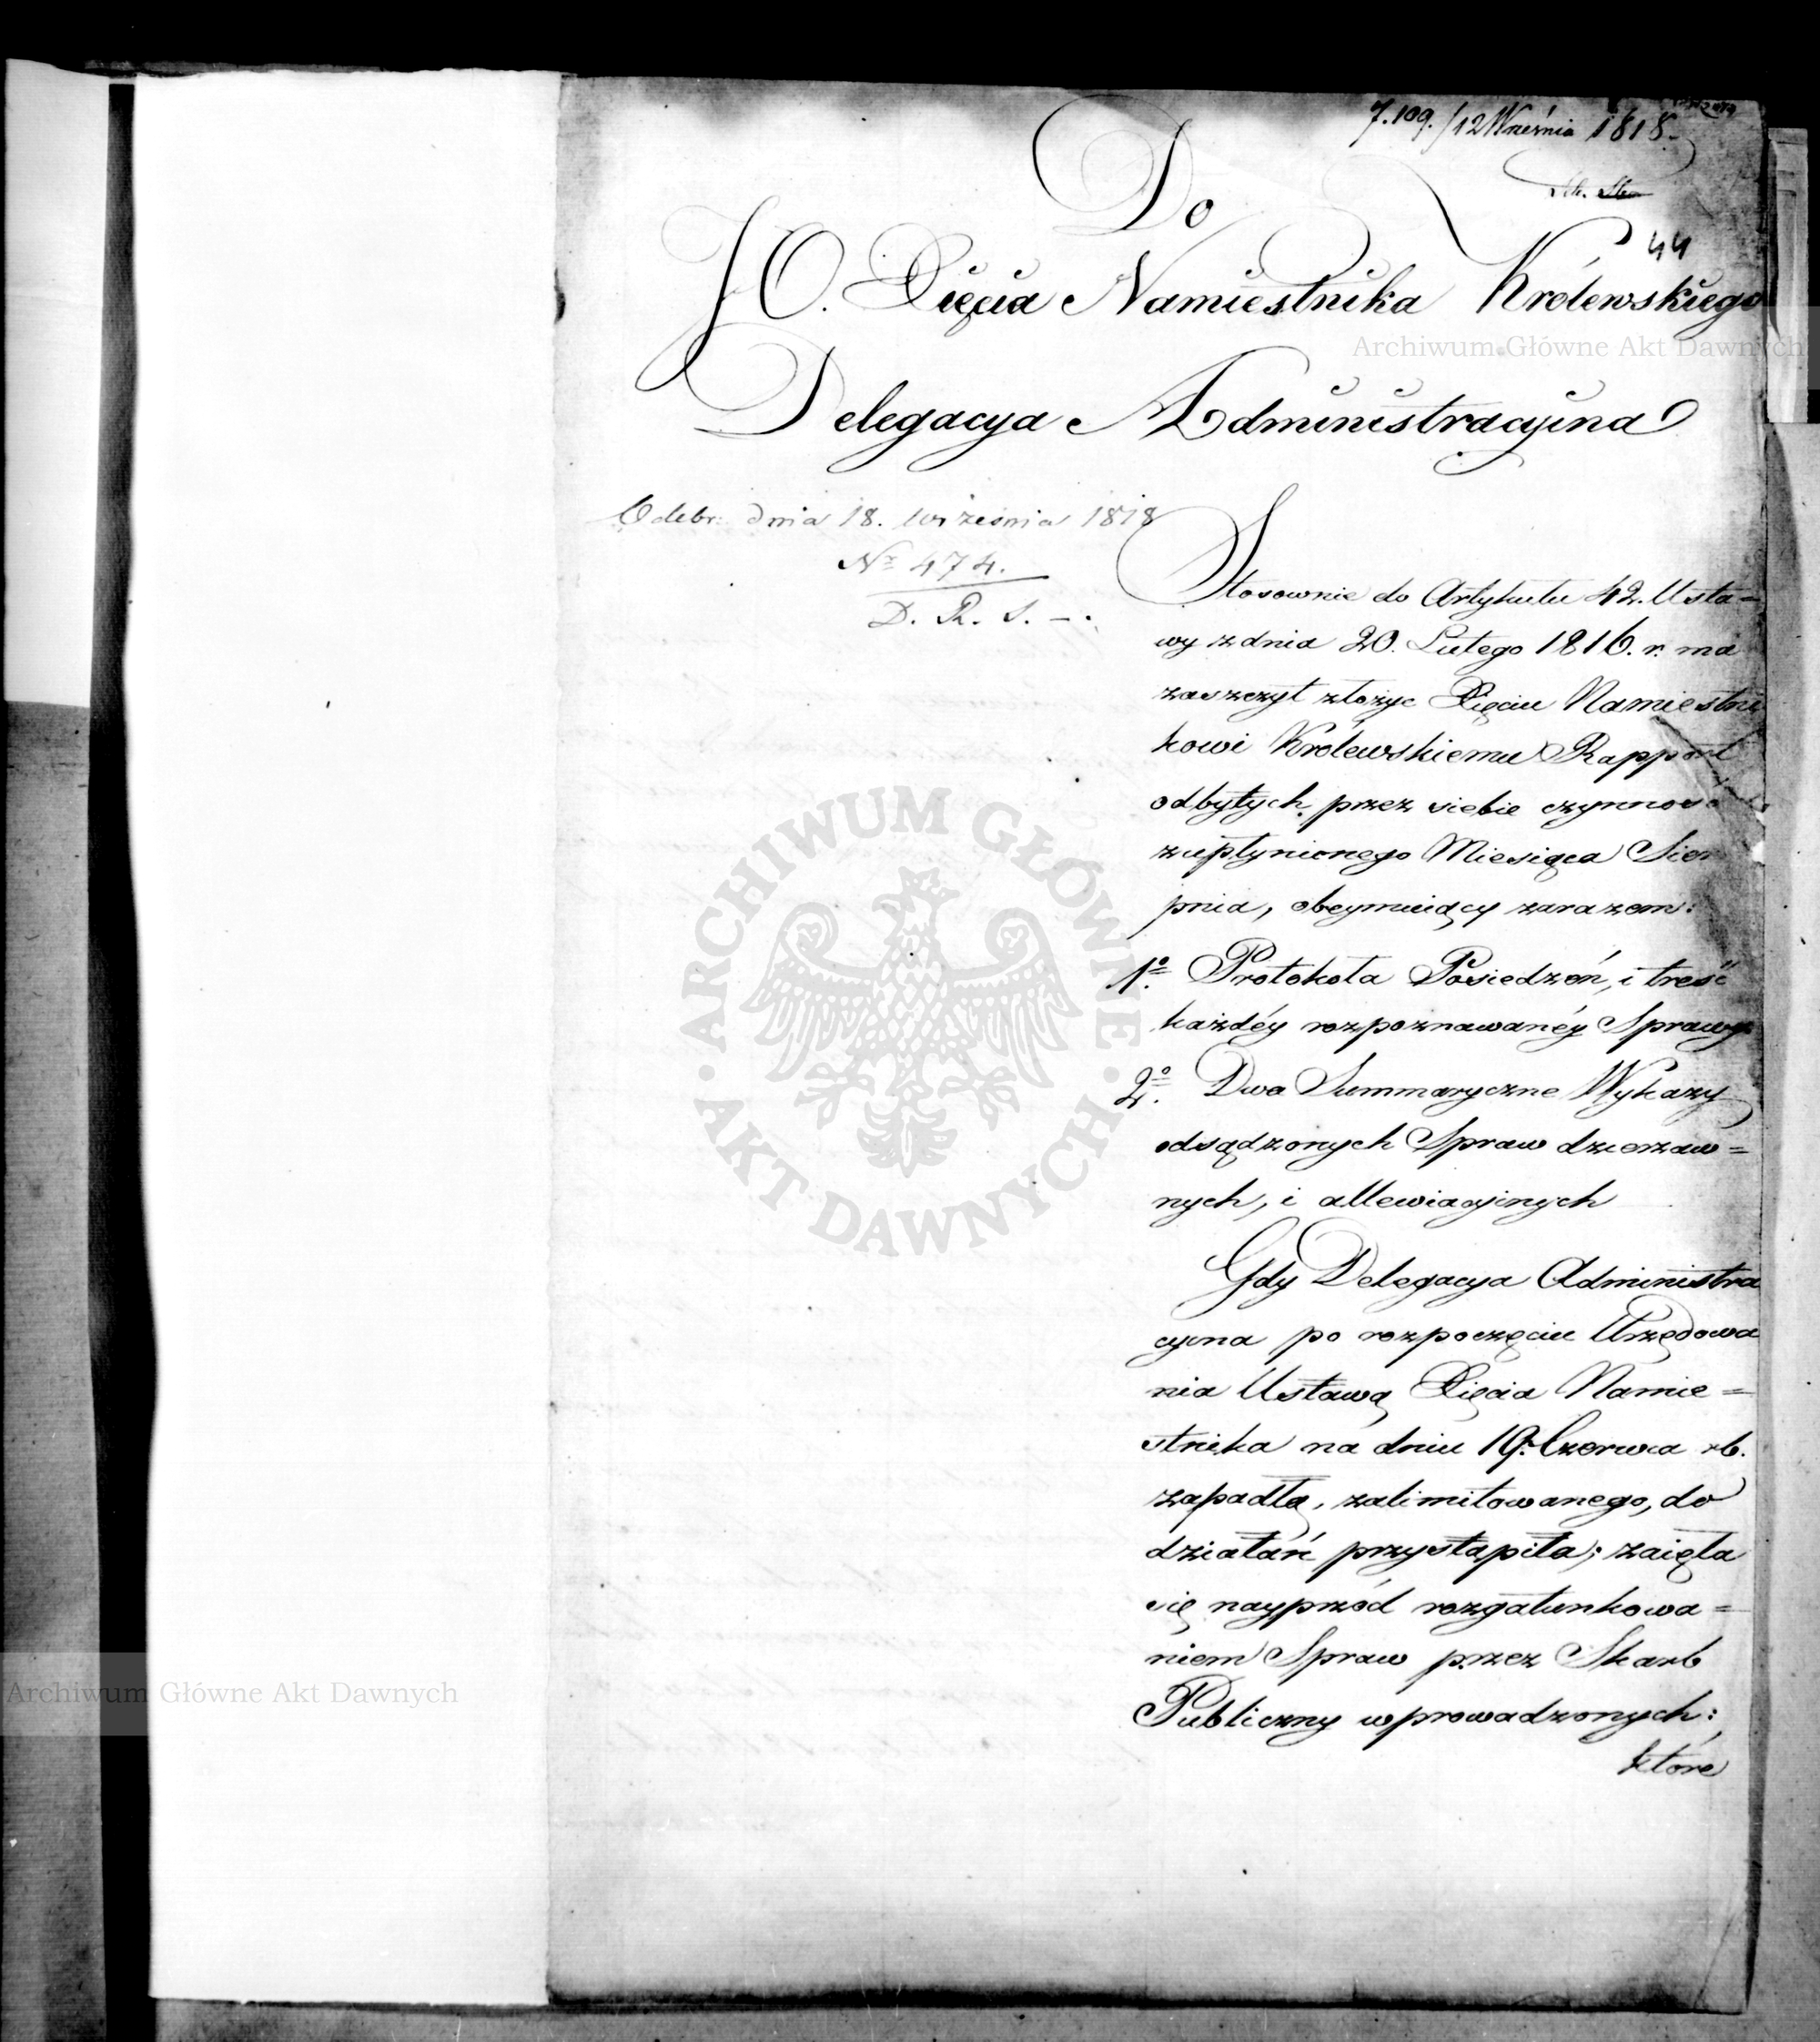 7.109./12 Września 1818.
44
Do
JO. Xięcia Namiestnika Królewskiego
Delegacya Administracyina
Odebr: dnia 18. września 1818
Nr 474.
D. R. S. —.
Stosownie do Artykułu 42. Usta=
wy z dnia 20. Lutego 1816. r. ma
zaszczyt złożyc Xięciu Namiestni
kowi Królewskiemu Rapport
odbytych przez siebie czynnosc
z upłynionego Miesiąca Sier
pnia, obeymuiący zarazem:
1º Protokoła Posiedzéń, i treść
każdéy rozpoznawanéy Sprawy
2º. Dwa Summaryczne Wykazy
odsądzonych Spraw dzierzaw=
nych, i allewiacyinych
Gdy Delegacya Administra
cyina po rozpoczęciu Urzędowa
nia Ustawą Xięcia Namie=
stnika na dniu 19. Czerwca rb.
zapadłą, zalimitowanego, do
działań przystąpiła; zaięła
się nayprzód rozgatunkowa=
niem Spraw przez Skarb
Publiczny wprowadzonych:
które
Archiwum Główne Akt Dawnych
ARCHIWUM GŁÓWNE
· AKT DAWNYCH ·
Archiwum Główne Akt Dawnych